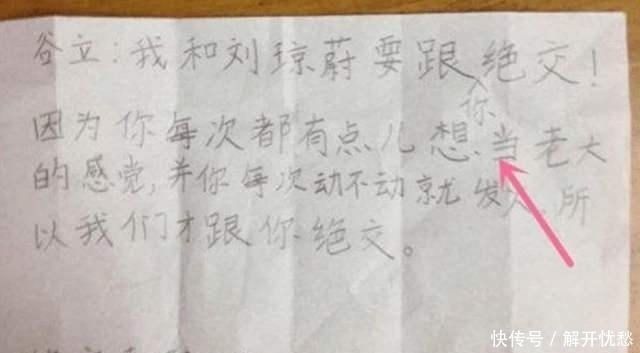 谷立:我和刘琼蔚要跟你绝交!
因为你每次都有点儿想当老大
的感觉,并你每次动不动就发人,所
以我们才跟你绝交。
快传号/解开忧愁